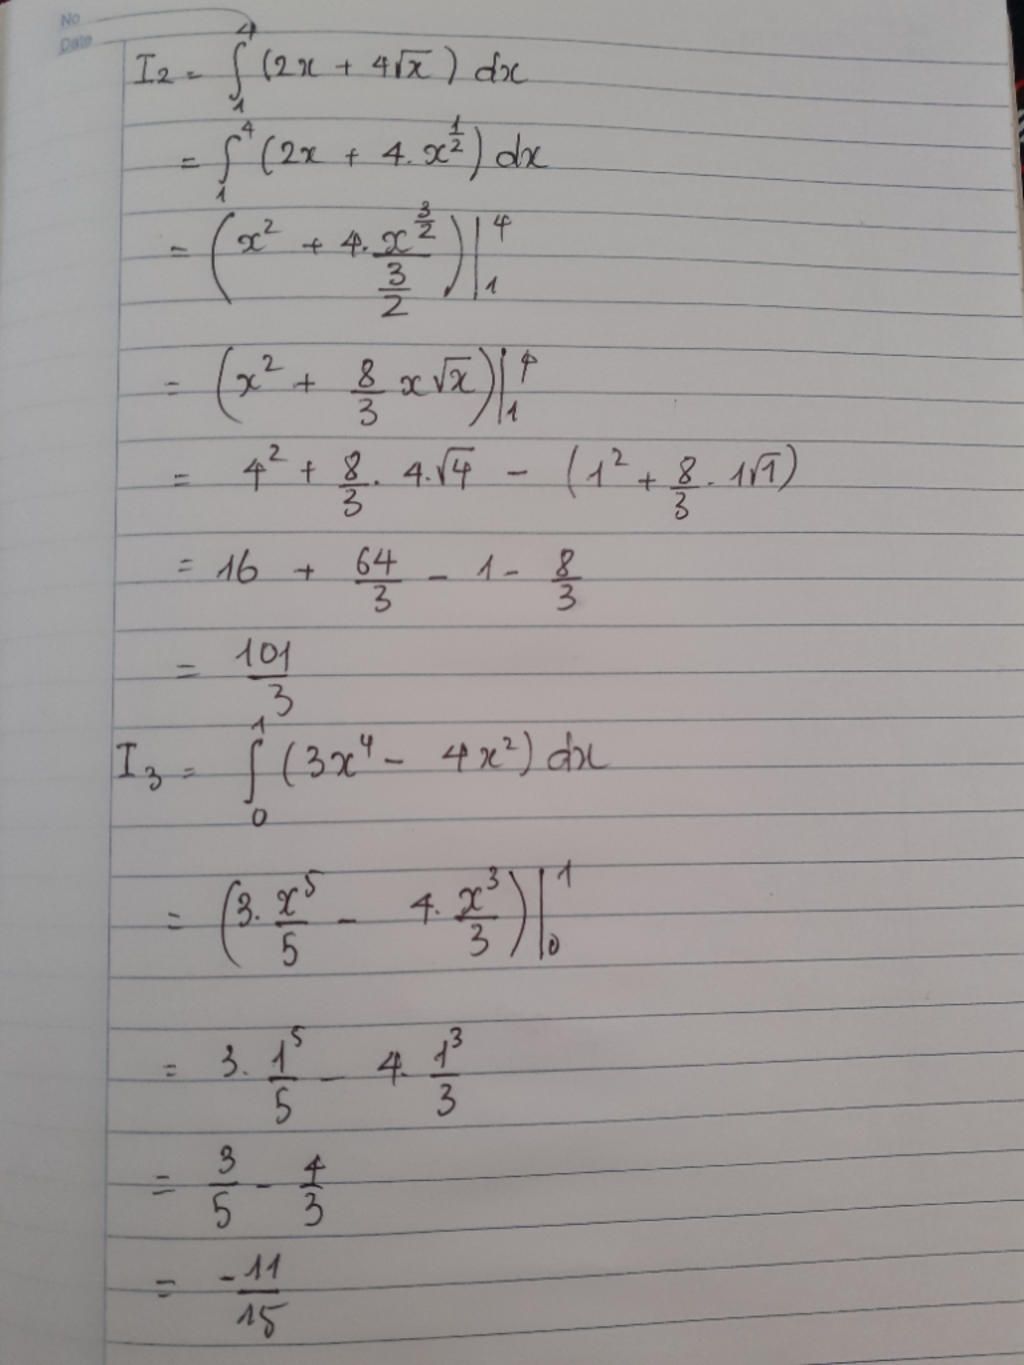 No
Date
I₂ = ∫₁⁴ (2x + 4√x) dx
= ∫₁⁴ (2x + 4.x^(1/2)) dx
= (x² + 4. x^(3/2) / (3/2)) |₁⁴
= (x² + 8/3 x√x) |₁⁴
= 4² + 8/3 . 4.√4 - (1² + 8/3 . 1√1)
= 16 + 64/3 - 1 - 8/3
= 101/3
I₃ = ∫₀¹ (3x⁴ - 4x²) dx
= (3. x⁵/5 - 4. x³/3) |₀¹
= 3. 1⁵/5 - 4. 1³/3
= 3/5 - 4/3
= -11/15